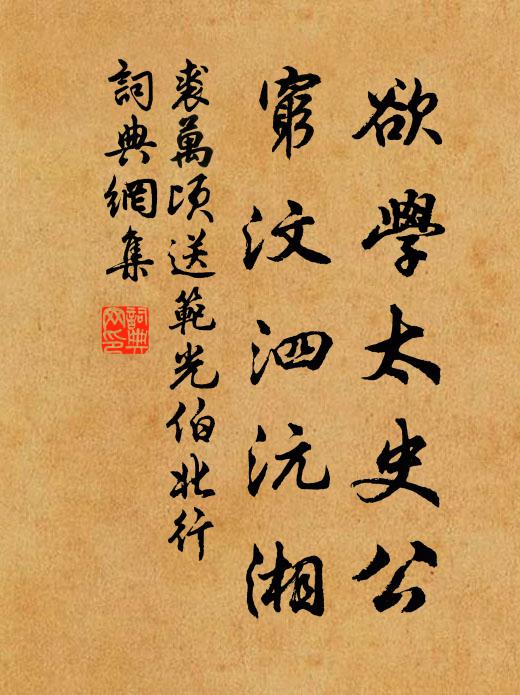 欲學太史公
窮汶泗沅湘
裘萬頃送範光伯北行
詞典網集
詞典網印